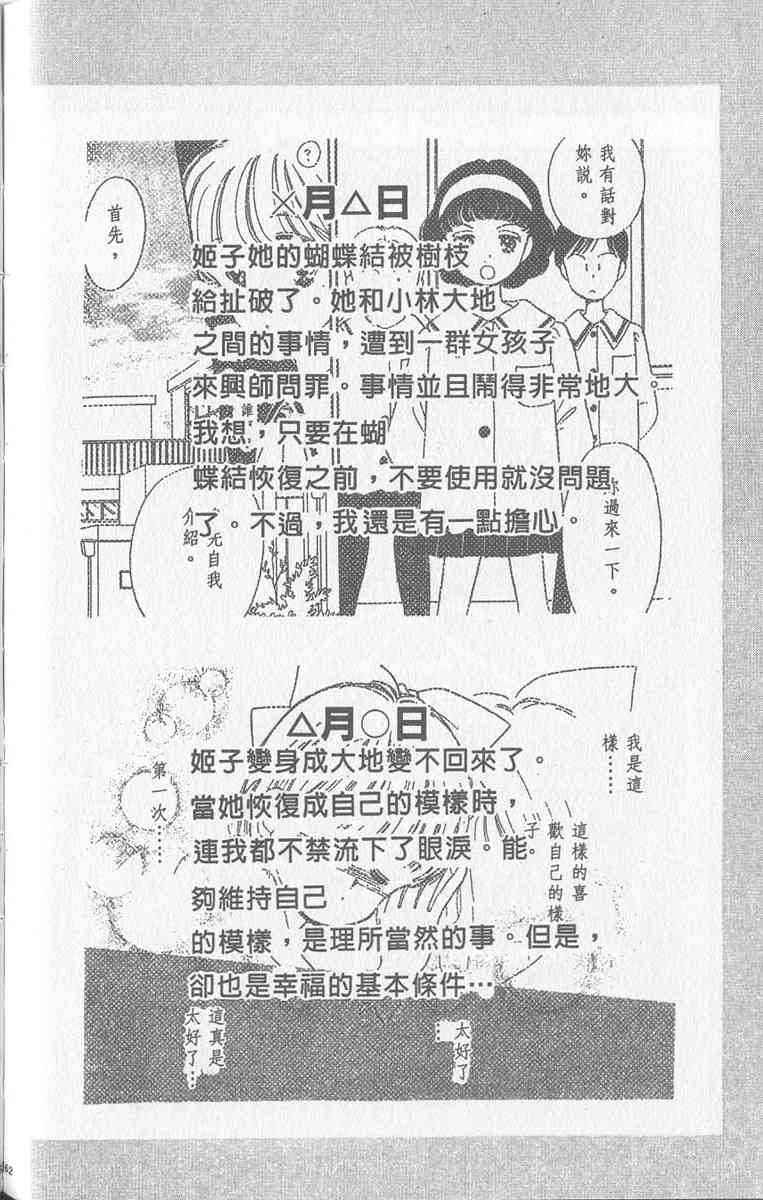 ×月△日
姬子她的蝴蝶結被樹枝
給扯破了。她和小林大地
之間的事情，遭到一群女孩子
來興師問罪。事情並且鬧得非常地大。
我想，只要在蝴
蝶結恢復之前，不要使用就沒問題
了。不過，我還是有一點擔心。
我有話對
妳說。
?
首先，
妳過來一下。
先自我
介紹。
△月○日
姬子變身成大地變不回來了。
當她恢復成自己的模樣時，
連我都不禁流下了眼淚。能
夠維持自己
的模樣，是理所當然的事。但是，
卻也是幸福的基本條件…
我是這
樣……
這樣的喜
歡自己的樣
子。
第一次……
太好了
……
這真是
太好了…